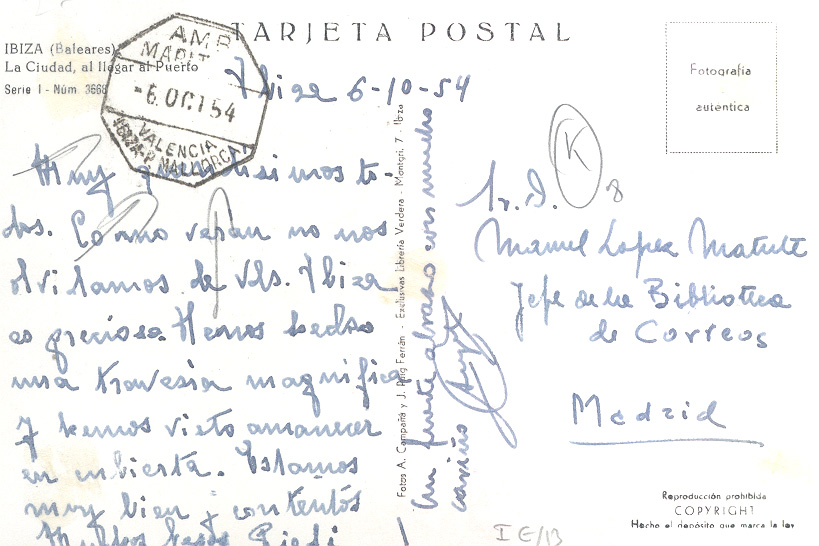 TARJETA POSTAL
IBIZA (Baleares)
La Ciudad, al llegar al Puerto
Serie I - Núm. 3668
AMB
MARIT
-6 OCT 54
VALENCIA
IBIZA-P. MALLORCA
Ibiza 6-10-54
Muy queridisimos to-
dos. Como verán no nos
olvidamos de Vds. Ibiza
es preciosa. Hemos hecho
una travesia magnifica
y hemos visto amanecer
en cubierta. Estamos
muy bien y contentos
Muchos besos
Un fuerte abrazo con mucho
cariño
Fotos A. Campañá y J. Puig Ferrán - Exclusivas Librería Verdera - Montgri, 7 - Ibiza
Fotografia
autentica
K
8
Sr. D.
Manuel Lopez Matute
Jefe de la Biblioteca
de Correos
Madrid
Reproducción prohibida
COPYRIGHT
Hecho el depósito que marca la ley
IE/13